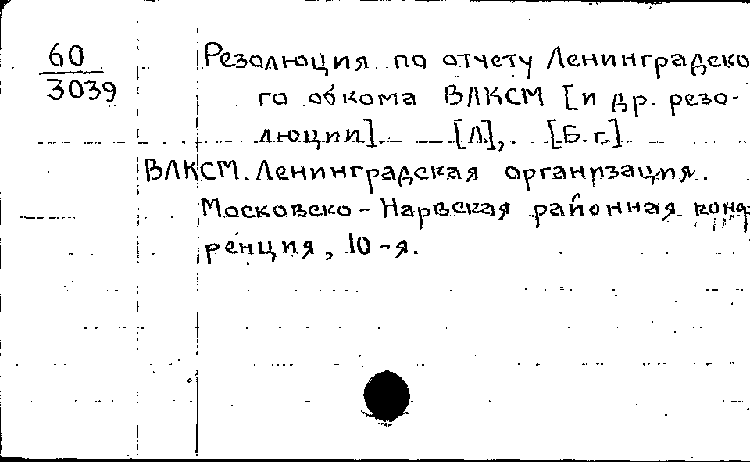 60
3039
Резолюция по отчету Ленинградско
го обкома ВЛКСМ [и др. резо-
люции]. [Л], [Б.г.]
ВЛКСМ. Ленинградская организация.
Московско-Нарвская районная конф
ренция, 10-я.